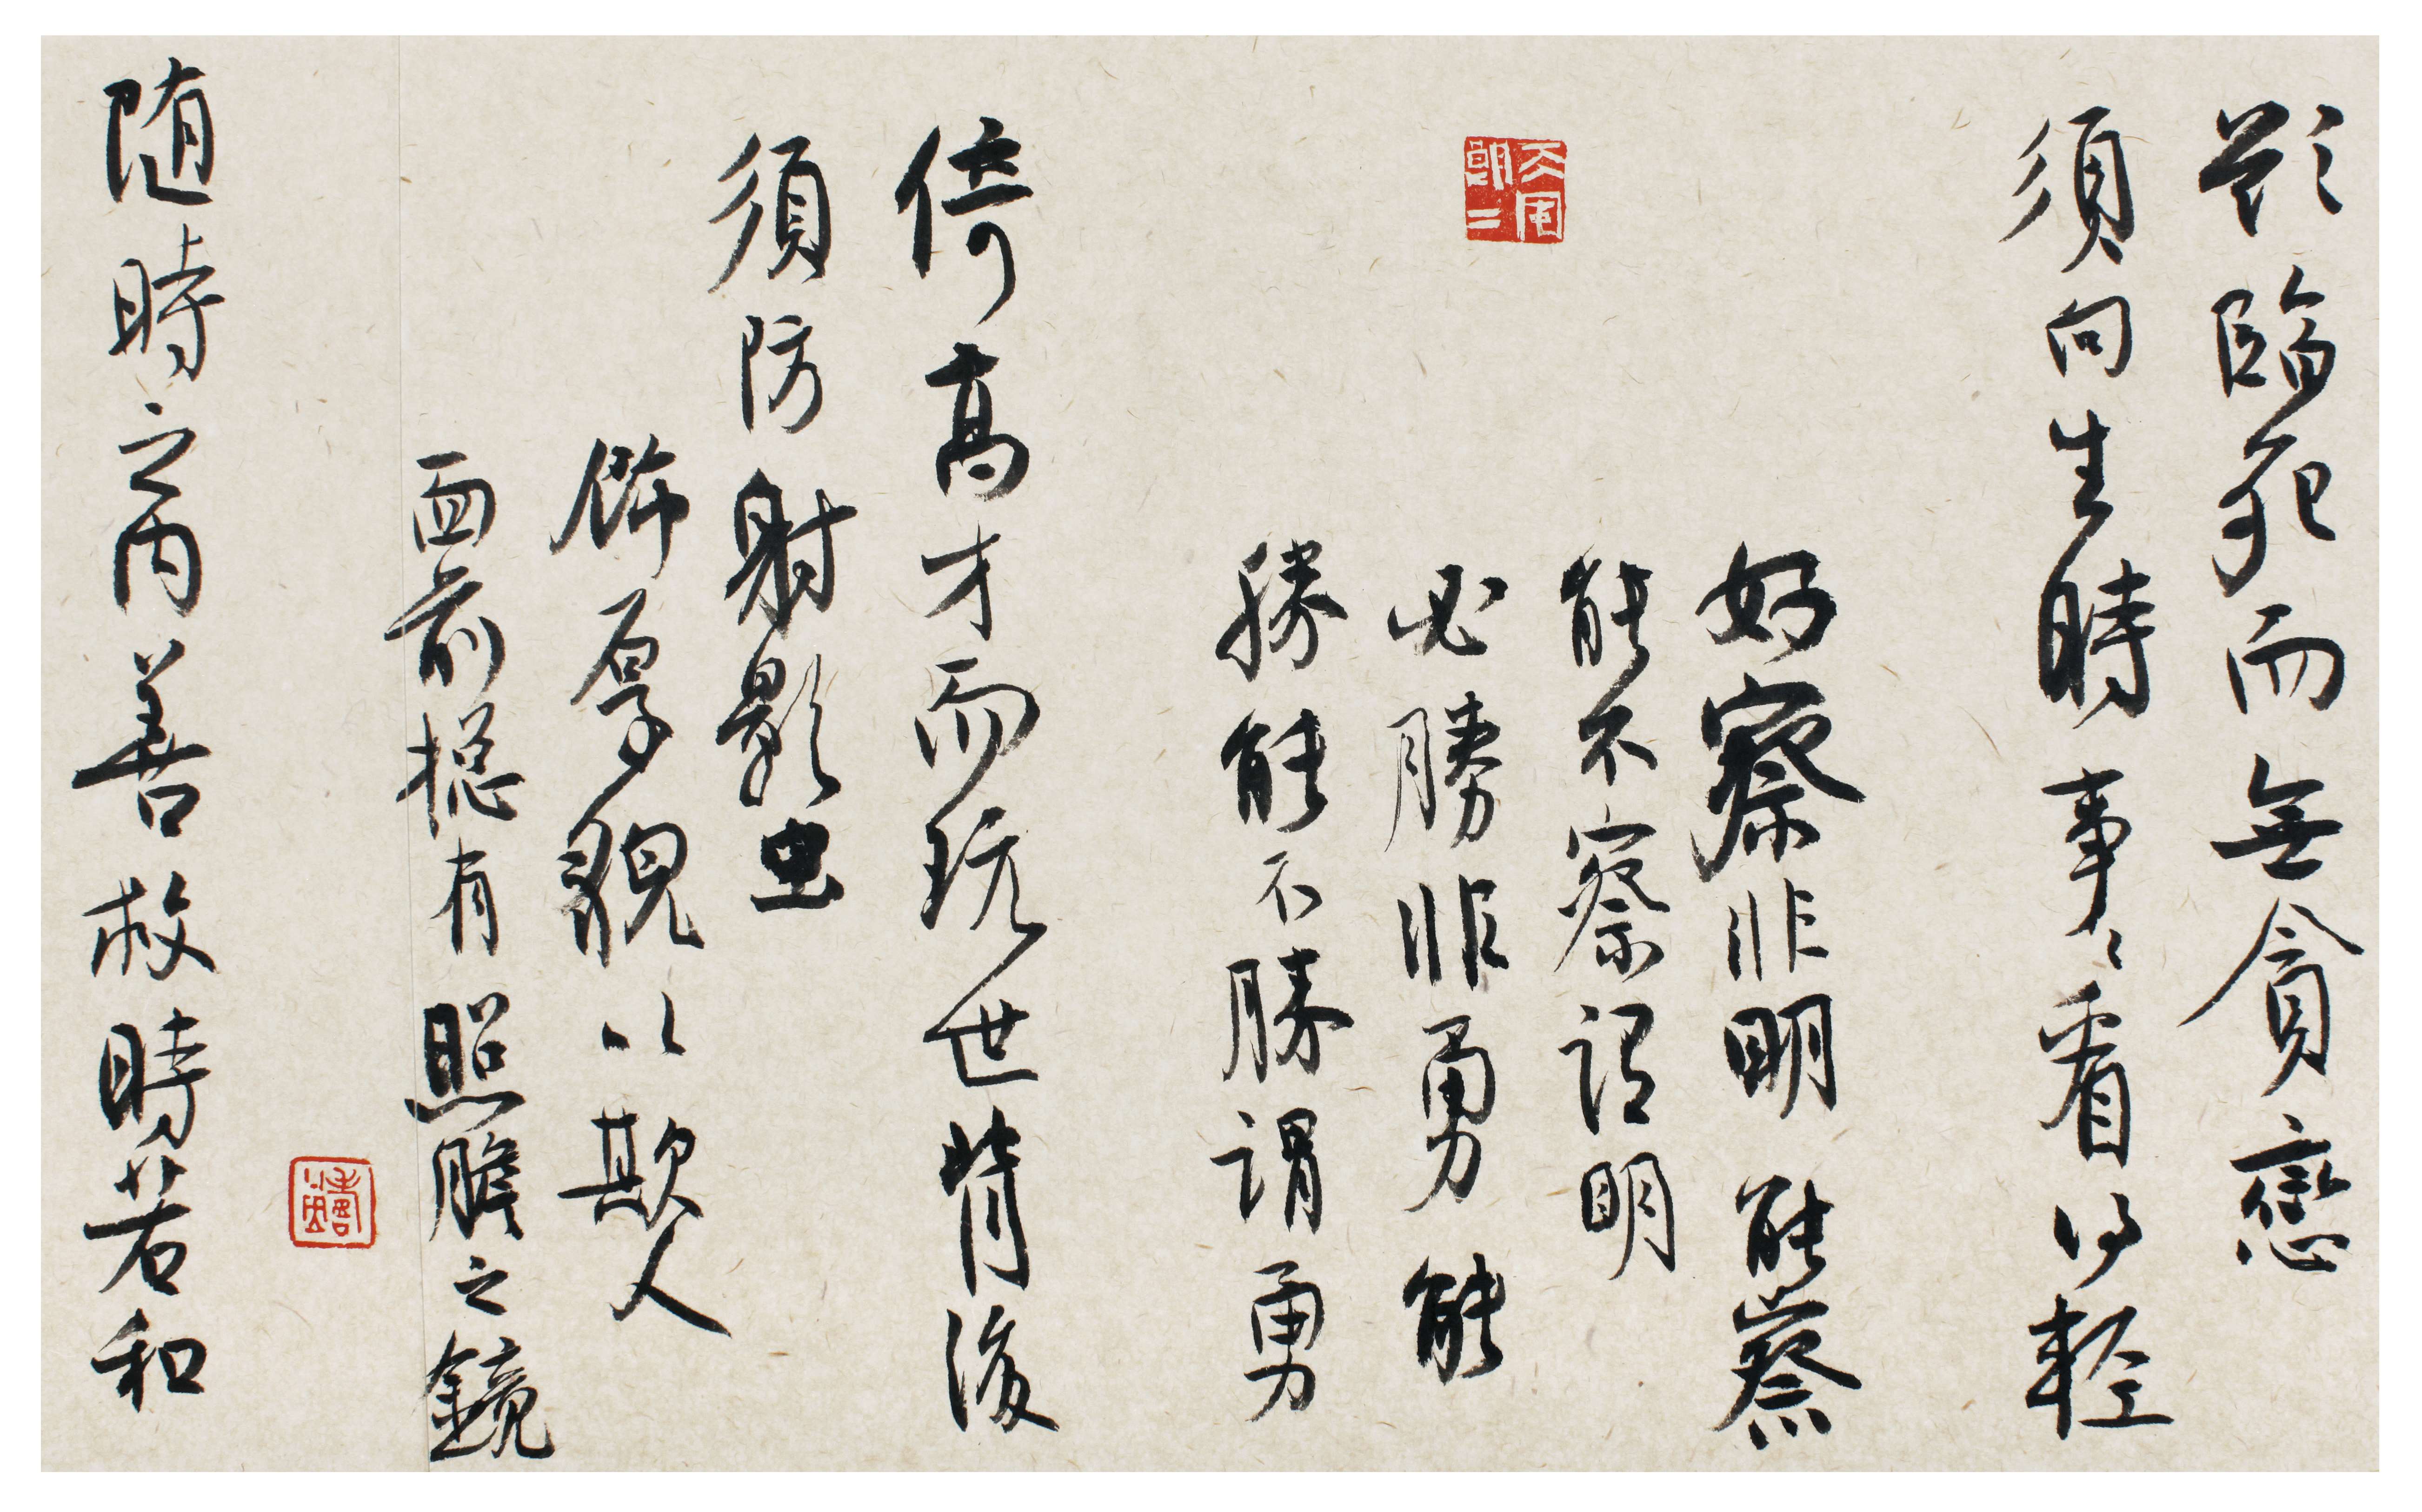 欲臨死而無貪戀
須向生時事々看得輕
好察非明能察
能不察謂明
必勝非勇能
勝能不勝謂勇
倚高才而玩世背後
須防射影虫
飾厚貌以欺人
面前摠有照膽之鏡
随時之内善救時若和